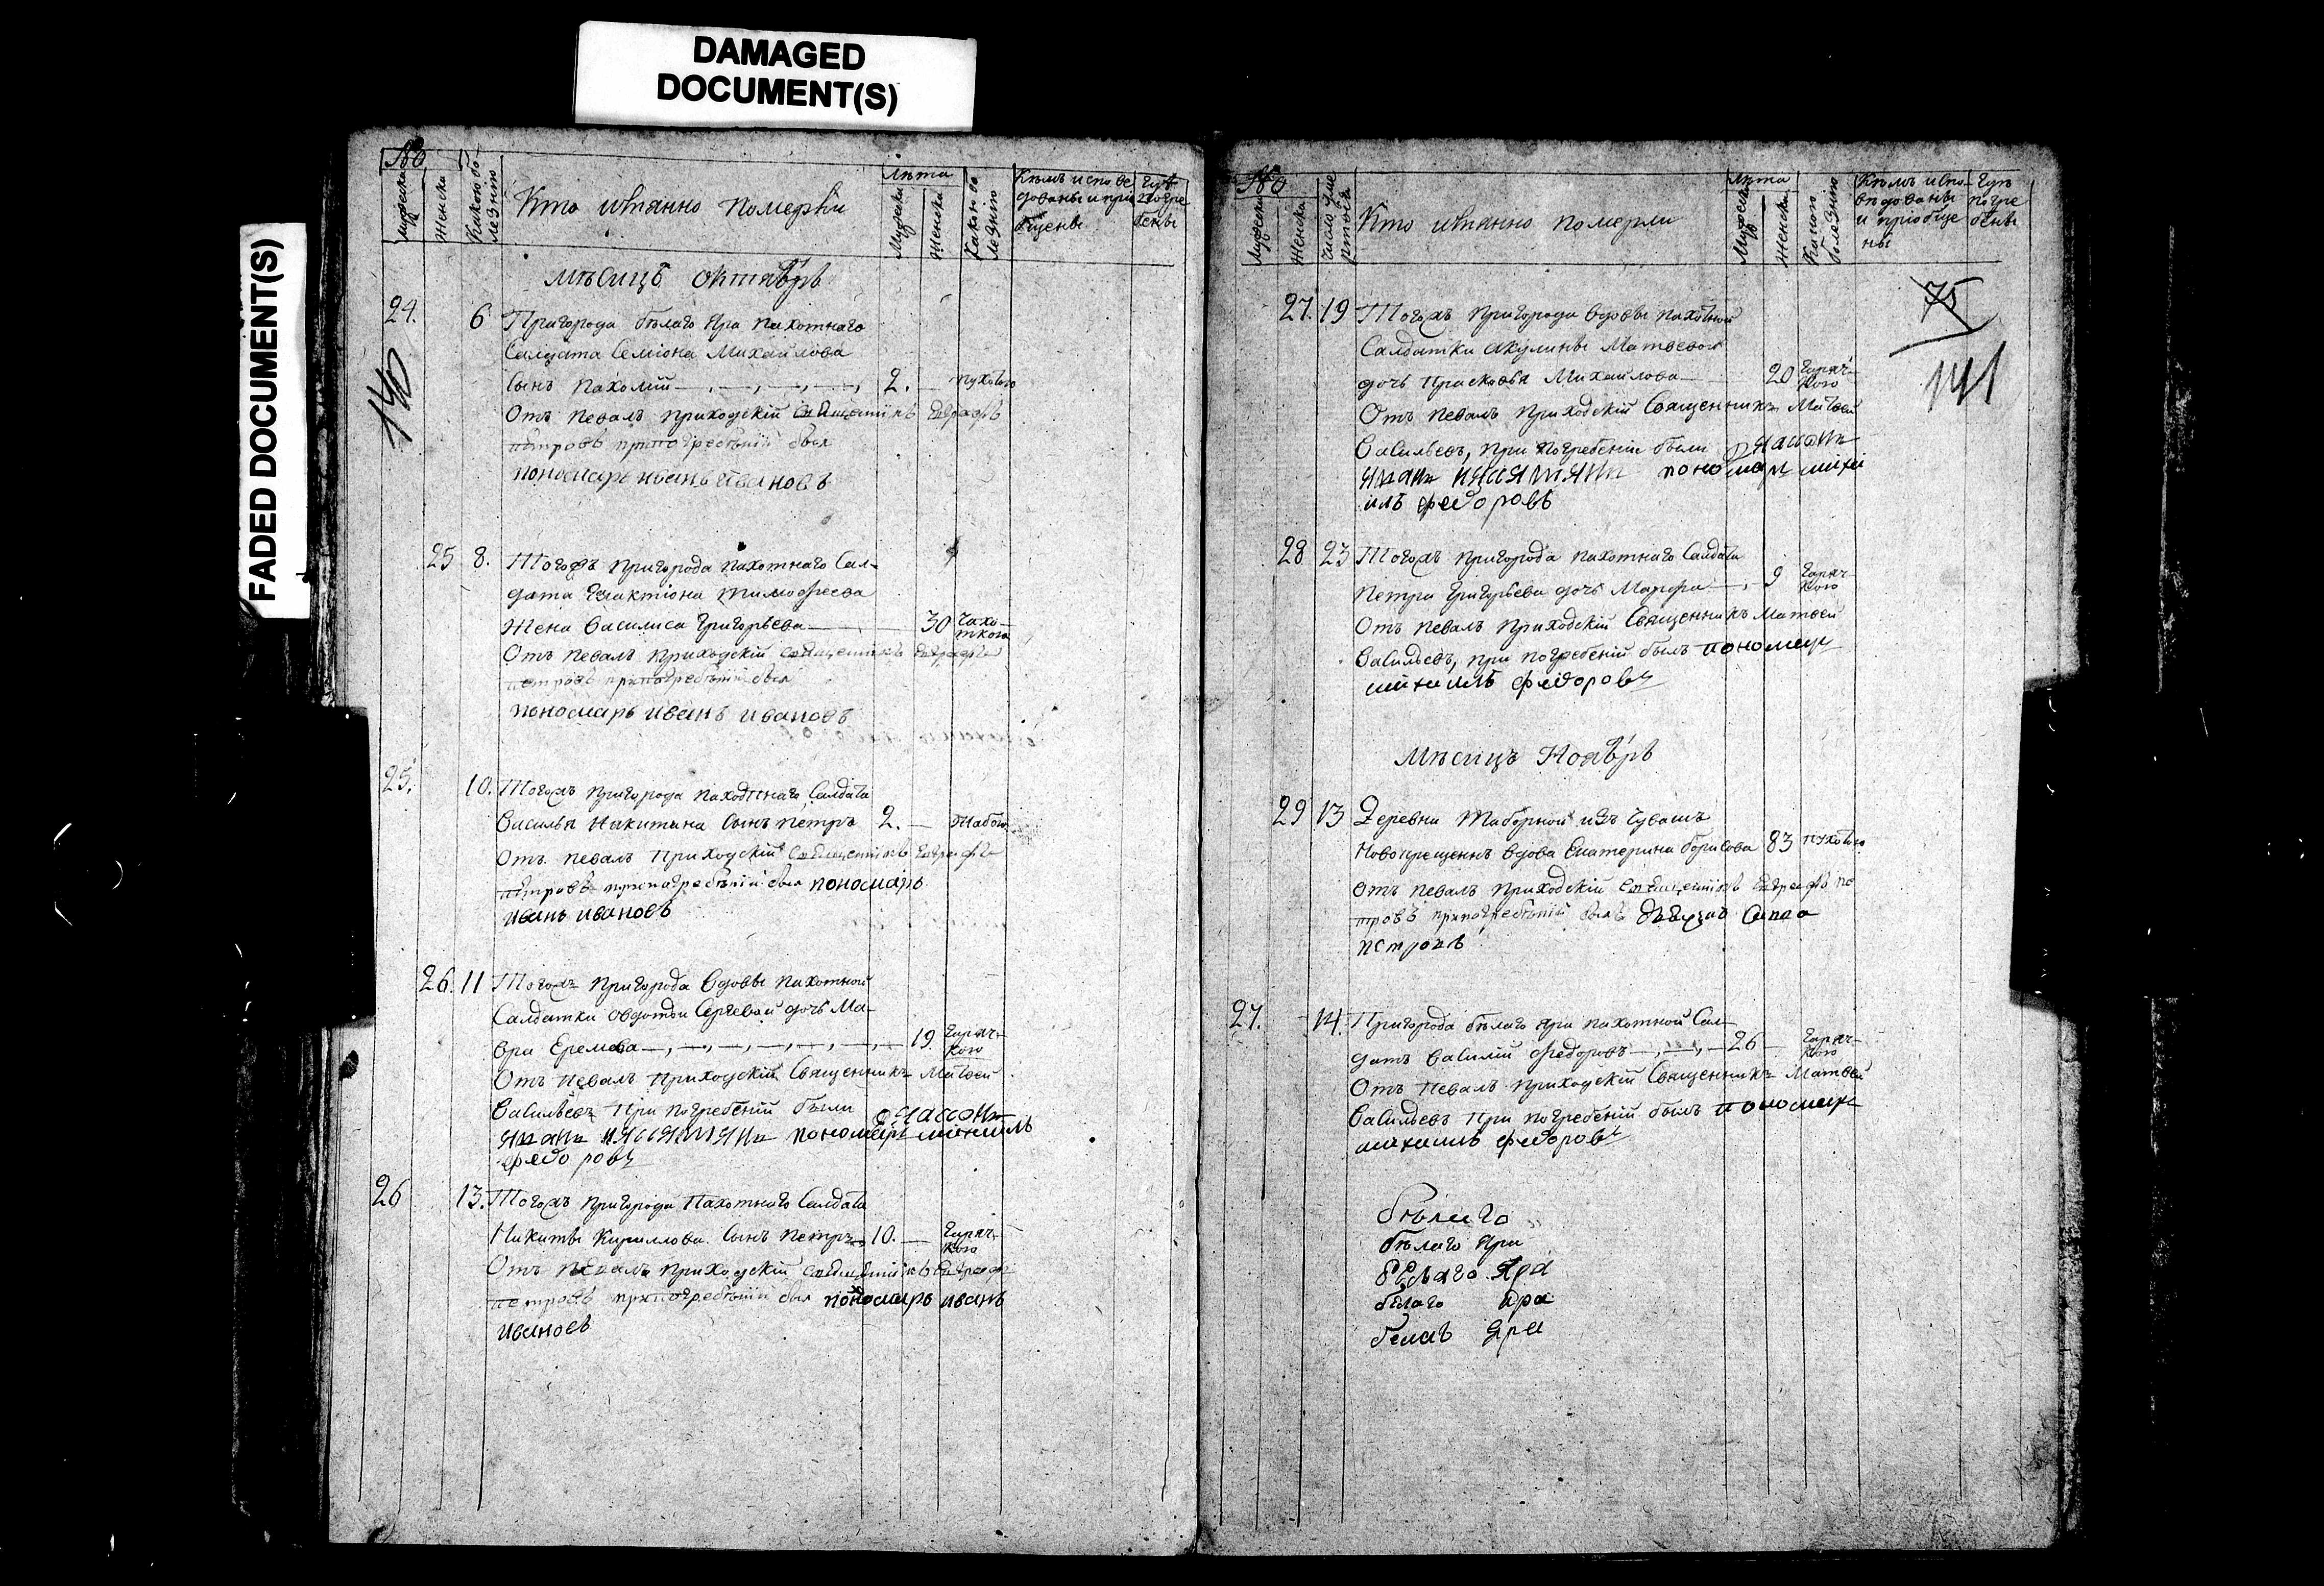 DAMAGED
DOCUMENT(S)
FADED DOCUMENT(S)
№
Мужеска
Женска
Кто имянно померли
Лѣта
Мужеска
Женска
Какою бо
лезнию
Кѣмъ испове
дованы и при
общены
Гдѣ
погре
бены
140
Мѣсяцъ октябрь
24. 6 Пригорода бѣлаго Яра пахотнаго
Салдата Семіона Михайлова
Сынъ Пахомій 2.
Отъ певалъ приходскій священникъ Евграфъ
петровъ при погребеніи былъ
пономарь иванъ ивановъ
25 8. Тогожъ пригорода пахотнаго Сал-
дата Тимофеева
Жена Василиса Григорьева 30 Чахо-
ткою
Отъ певалъ приходскій священникъ Евграфъ
петровъ при погребеніи былъ
пономарь иванъ ивановъ
25. 10. Тогожъ пригорода пахотнаго Салдата
Василья Никитина Сынъ петръ 2. Жабою
Отъ певалъ приходскій священникъ Евграфъ
петровъ при погребеніи былъ пономарь
иванъ ивановъ
26. 11 Тогожъ пригорода вдовы пахотной
Салдатки Овдотьи Сергевой дочь Ма-
вра Еремева 19 Горяч-
кою
Отъ певалъ приходскій Священникъ Матвей
Васильевъ При погребеніи были
пономарь михаилъ
федоровъ
26 13. Тогожъ пригорода Пахотнаго Салдата
Никиты Кириллова Сынъ Петръ 10. Горяч-
кою
Отъ певалъ приходскій священникъ Евграфъ
петровъ при погребеніи былъ пономарь иванъ
ивановъ
№
Мужеска
Женска
Число уме
ртвія
Кто имянно померли
Лѣта
Мужеска
Женска
Какою
болезнию
Кѣмъ испо-
вѣдованы
и приобще
ны
Гдѣ
погре
бены
75
141
27. 19 Тогожъ пригорода вдовы пахотной
Салдатки Акулины Матвевой
дочь Прасковья Михайлова 20 Горяч-
кою
Отъ певалъ приходскій Священникъ Матвей
Васильевъ, при погребеніи были
пономарь михаи
илъ федоровъ
28 23 Тогожъ пригорода пахотнаго Салдата
Петра Григорьева дочь Марфа 9 Горяч-
кою
Отъ певалъ приходскій Священникъ Матвей
Васильевъ, при погребеніи былъ пономарь
михаилъ федоровъ
Мѣсяцъ Ноябрь
29 13 Деревни Таборной изъ Чувашъ
Новокрещеннъ вдова Екатерина борисова 83
Отъ певалъ приходскій священникъ Евграфъ пе
тровъ при погребеніи былъ
петровъ
27. 14. Пригорода бѣлаго яра пахотной Сал-
датъ Василій Федоровъ 26 Горяч-
кою
Отъ певалъ приходскій Священникъ Матвей
Васильевъ При погребеніи былъ пономарь
михаилъ федоровъ
бѣлаго
бѣлаго Яра
бѣлаго Яра
бѣлаго Яра
белаъ Яра